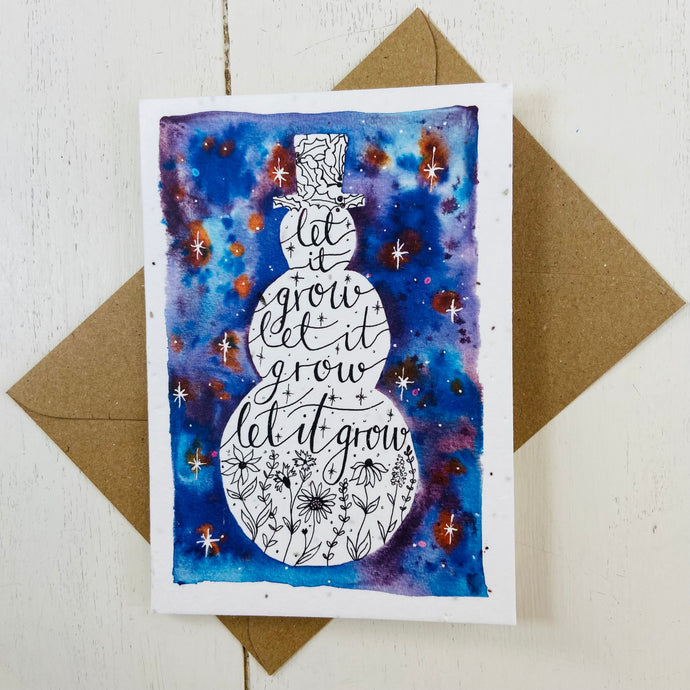 let
it
grow
let it
grow
let it grow